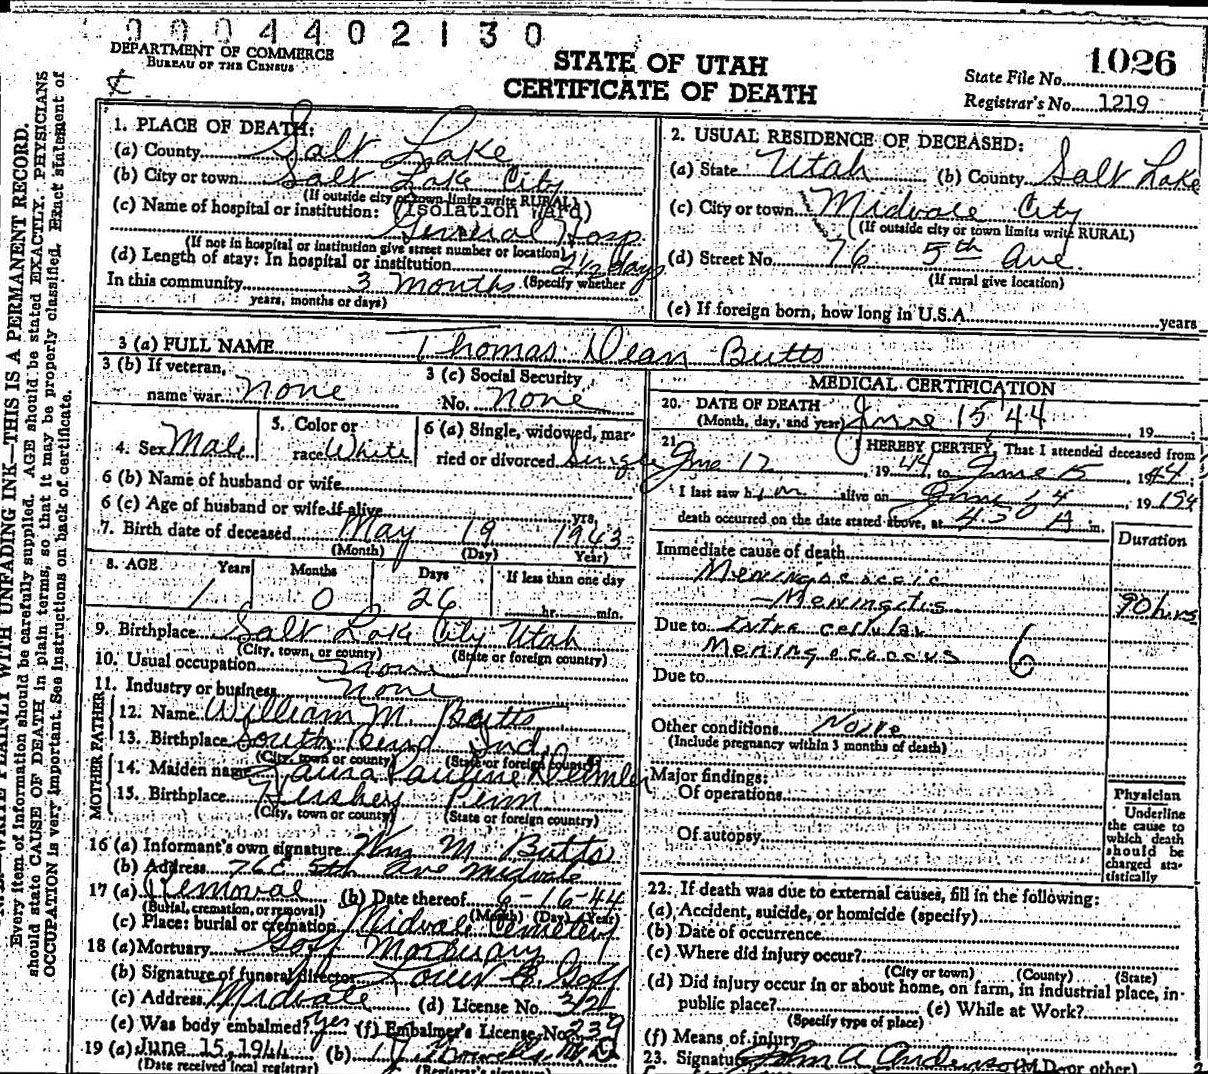 0004402130
DEPARTMENT OF COMMERCE
BUREAU OF THE CENSUS
STATE OF UTAH
CERTIFICATE OF DEATH
State File No. 1026
Registrar's No. 1219
WRITE PLAINLY WITH UNFADING INK—THIS IS A PERMANENT RECORD.
Every item of information should be carefully supplied. AGE should be stated EXACTLY. PHYSICIANS
should state CAUSE OF DEATH in plain terms, so that it may be properly classified. Exact statement of
OCCUPATION is very important. See instructions on back of certificate.
1. PLACE OF DEATH:
(a) County Salt Lake
(b) City or town Salt Lake City
(If outside city or town limits write RURAL)
(c) Name of hospital or institution: (Isolation Ward)
General Hosp.
(If not in hospital or institution give street number or location)
(d) Length of stay: In hospital or institution 2 1/2 days
In this community 3 months (Specify whether
years, months or days)
2. USUAL RESIDENCE OF DECEASED:
(a) State Utah (b) County Salt Lake
(c) City or town Midvale City
(If outside city or town limits write RURAL)
(d) Street No. 76 5th Ave.
(If rural give location)
(e) If foreign born, how long in U.S.A. years
3 (a) FULL NAME Thomas Dean Butts
3 (b) If veteran,
name war none
3 (c) Social Security
No. none
4. Sex Male
5. Color or
race White
6 (a) Single, widowed, mar-
ried or divorced Single
6 (b) Name of husband or wife
6 (c) Age of husband or wife if alive yrs.
7. Birth date of deceased May 19 1943
(Month) (Day) Year)
8. AGE Years Months Days If less than one day
1 0 26 hr. min.
9. Birthplace Salt Lake City Utah
(City, town, or county) (State or foreign country)
10. Usual occupation none
11. Industry or business none
FATHER
12. Name William M. Butts
13. Birthplace South Bend Ind.
(City, town or county) (State or foreign country)
MOTHER
14. Maiden name Laura Pauline
15. Birthplace Hershey Penn
(City, town or county) (State or foreign country)
16 (a) Informant's own signature Wm M. Butts
(b) Address 76 5th Ave Midvale
17 (a) Removal (b) Date thereof 6-16-44
(Burial, cremation, or removal) (Month) (Day) (Year)
(c) Place: burial or cremation Midvale Cemetery
18 (a) Mortuary Goff Mortuary
(b) Signature of funeral director Goff
(c) Address Midvale (d) License No.
(e) Was body embalmed? Yes (f) Embalmer's License No. 239
19 (a) June 15, 1944 (b)
(Date received local registrar) (Registrar's signature)
MEDICAL CERTIFICATION
20. DATE OF DEATH
(Month, day, and year) June 15, '44, 19
21. I HEREBY CERTIFY, That I attended deceased from
June 12, 1944, to June 15, 1944;
I last saw him alive on June 14, 19
death occurred on the date stated above, at A m.
Duration
Immediate cause of death
Meningococcic
—Meningitis 90 hrs
Due to Intra cellular
Meningococcus 6
Due to
Other conditions None
(Include pregnancy within 3 months of death)
Major findings:
Of operations
Of autopsy
Physician
Underline
the cause to
which death
should be
charged sta-
tistically
22. If death was due to external causes, fill in the following:
(a) Accident, suicide, or homicide (specify)
(b) Date of occurrence
(c) Where did injury occur?
(City or town) (County) (State)
(d) Did injury occur in or about home, on farm, in industrial place, in
public place? (e) While at Work?
(Specify type of place)
(f) Means of injury
23. Signature John A Anderson (M.D. or other)